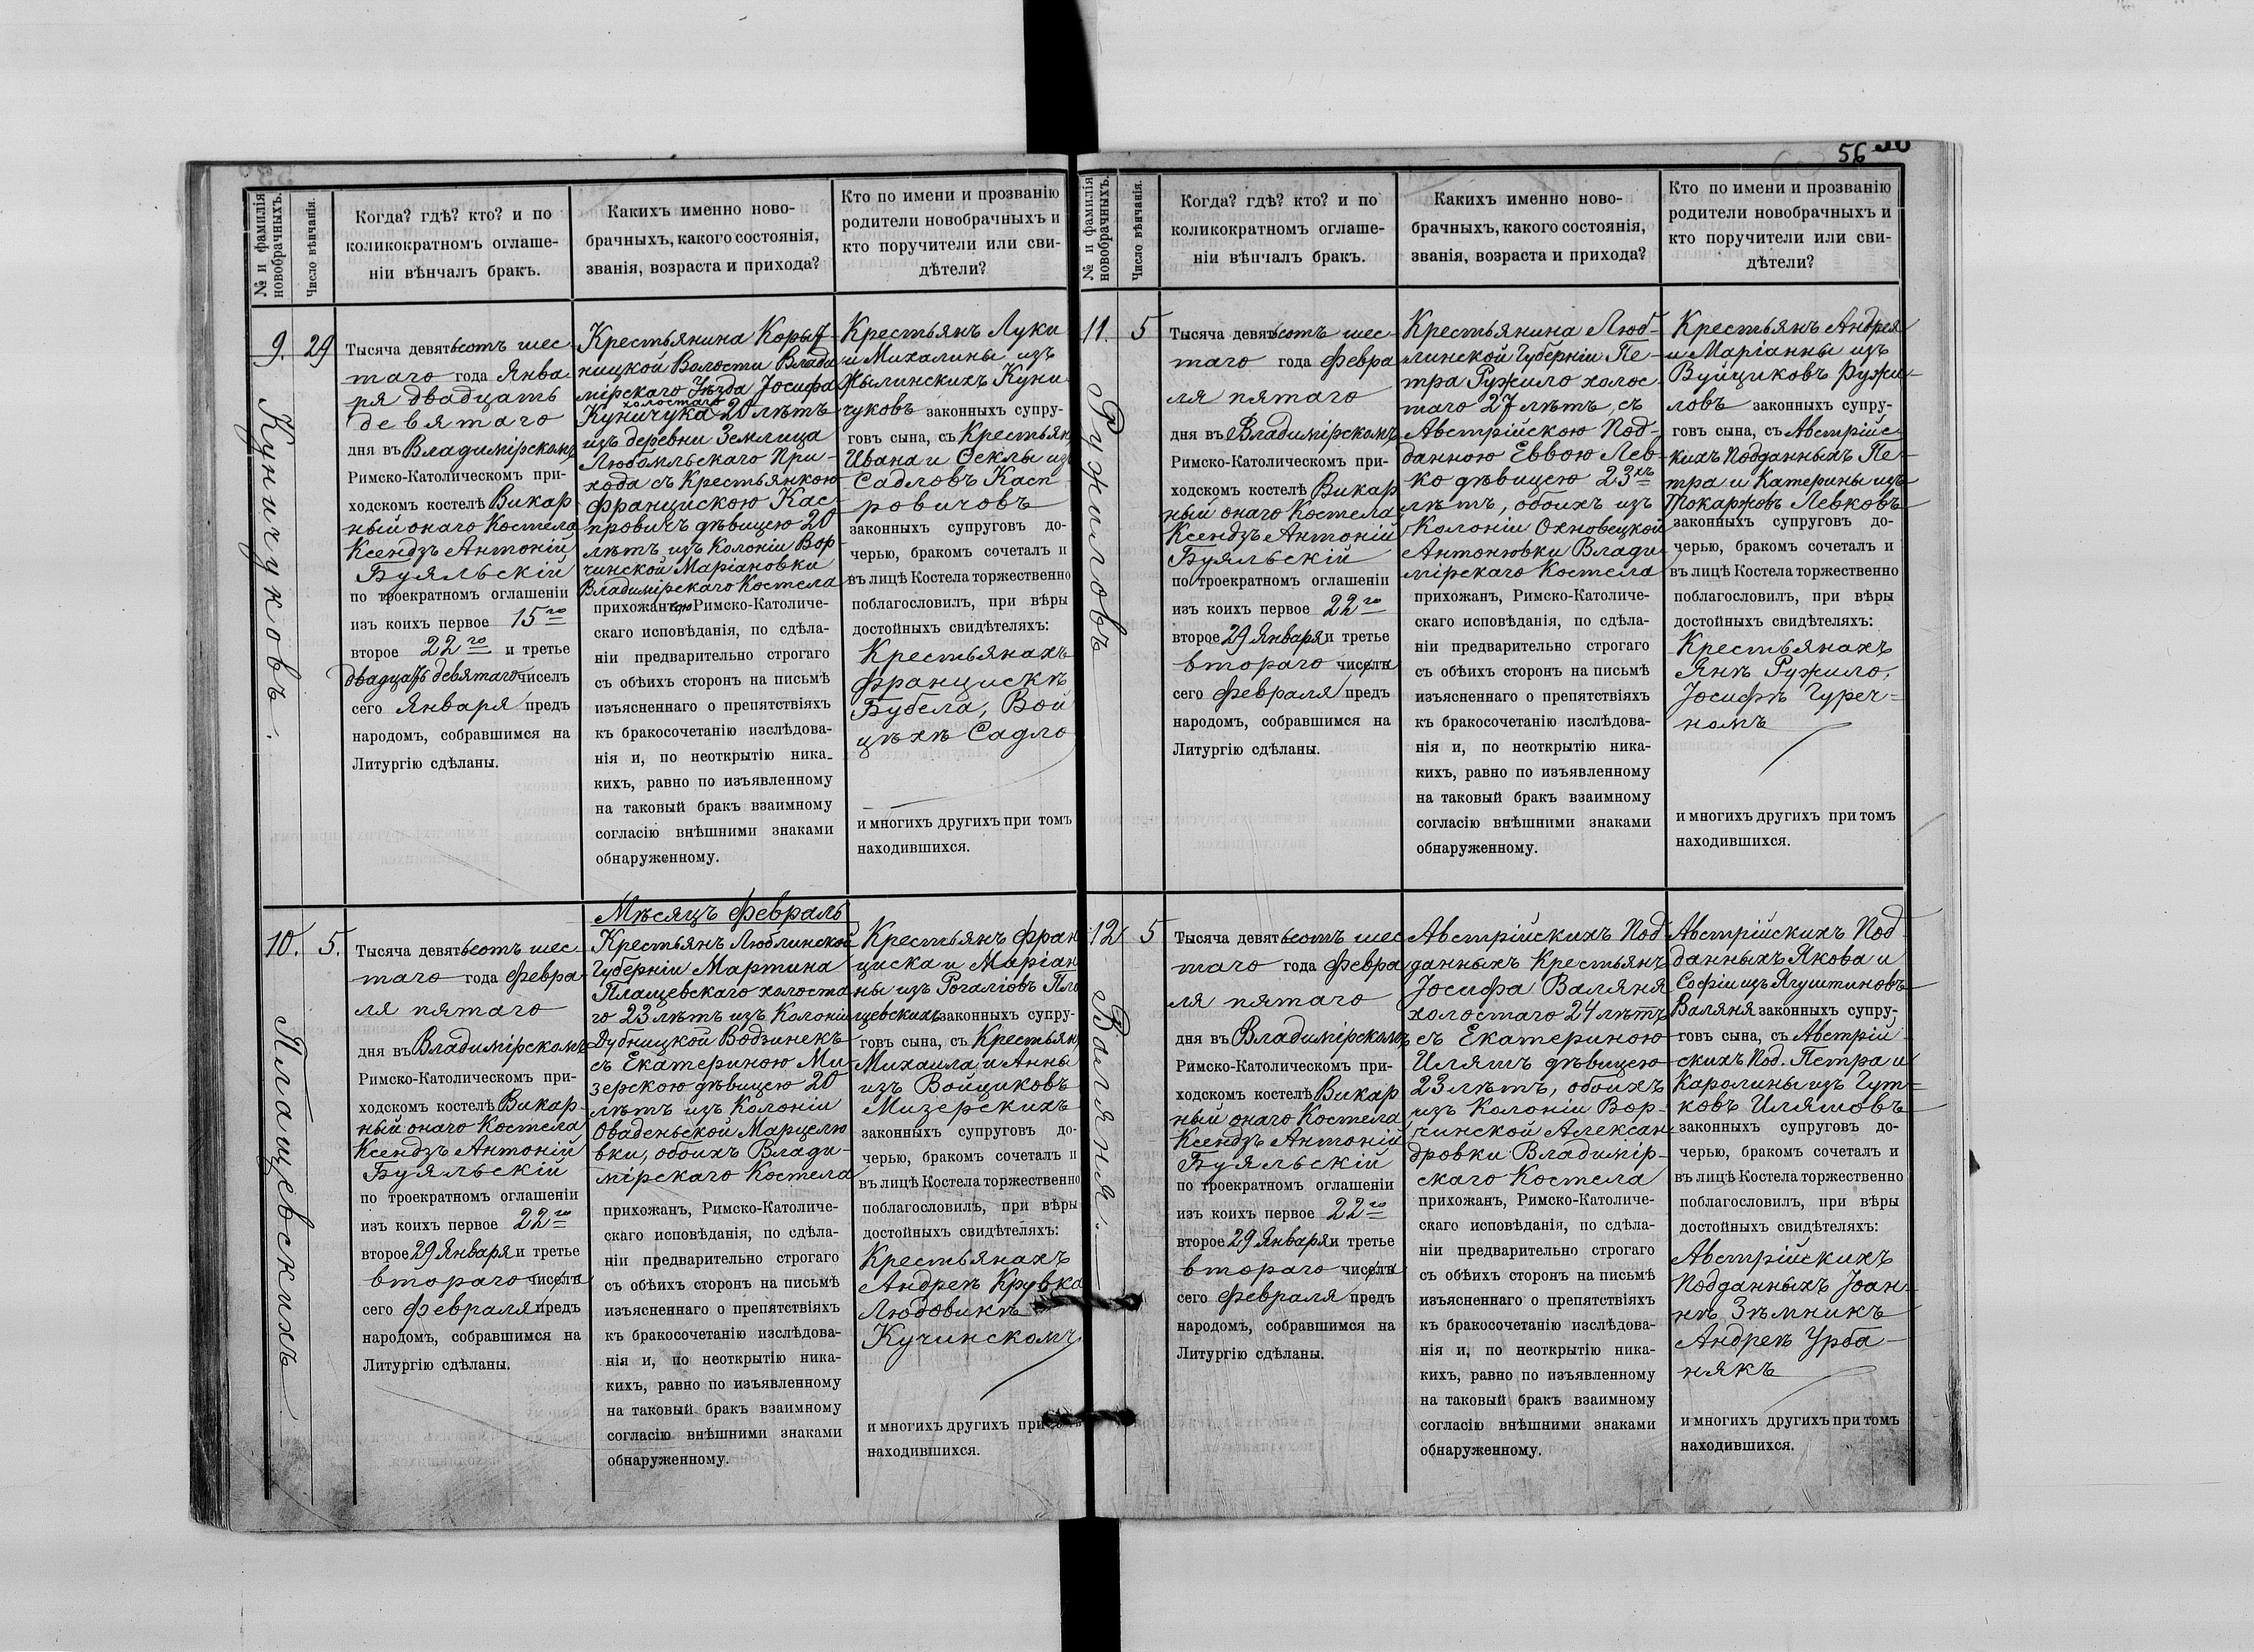 56
№ и фамилія
новобрачныхъ.
Число вѣнчанія.
Когда? гдѣ? кто? и по
коликократномъ оглаше-
ніи вѣнчалъ бракъ.
Какихъ именно ново-
брачныхъ, какого состоянія,
званія, возраста и прихода?
Кто по имени и прозванію
родители новобрачныхъ и
кто поручители или сви-
дѣтели?
9.
Куничуковъ.
29
Тысяча девятьсотъ шес
таго года Янва
ря двадцать
девятаго
дня въ Владимірскомъ
Римско-Католическомъ при-
ходскомъ костелѣ Викар
ный онаго Костела
Ксендзъ Антоній
Буяльскій
по троекратномъ оглашеніи
изъ коихъ первое 15го
второе 22го и третье
двадцать девятаго чиселъ
сего Января предъ
народомъ, собравшимся на
Литургію сдѣланы.
Крестьянина Корыт
ницкой Волости Влади
мірскаго Уѣзда Іосифа
холостаго
Куничука 20 лѣтъ
изъ деревни Землица
Любомльскаго При-
хода съ Крестьянкою
Францискою Кас-
провичъ дѣвицею 20
лѣтъ изъ Колоніи Вор
чинской Маріановки
Владимірскаго Костела
прихожанкою Римско-Католиче-
скаго исповѣданія, по сдѣла-
ніи предварительно строгаго
съ обѣихъ сторонъ на письмѣ
изъясненнаго о препятствіяхъ
къ бракосочетанію изслѣдова-
нія и, по неоткрытію ника-
кихъ, равно по изъявленному
на таковый бракъ взаимному
согласію внѣшними знаками
обнаруженному.
Крестьянъ Луки
и Михалины изъ
Жылинскихъ Куни
чуковъ законныхъ супру-
говъ сына, съ Крестьян
Ивана и Ѳеклы из
Садловъ Касп
ровичовъ
законныхъ супруговъ до-
черью, бракомъ сочеталъ и
въ лицѣ Костела торжественно
поблагословилъ, при вѣры
достойныхъ свидѣтеляхъ:
Крестьянахъ
Францискѣ
Бубела, Вой
цѣхѣ Садло
и многихъ другихъ при томъ
находившихся.
10.
Плащевскихъ
5.
Тысяча девятьсотъ шес
таго года Февра
ля пятаго
дня въ Владимірскомъ
Римско-Католическомъ при-
ходскомъ костелѣ Викар-
ный онаго Костела
Ксендзъ Антоній
Буяльскій
по троекратномъ оглашеніи
изъ коихъ первое 22го
второе 29 Января и третье
втораго числа
сего Февраля предъ
народомъ, собравшимся на
Литургію сдѣланы.
Мѣсяцъ Февраль
Крестьянъ Люблинской
Губерніи Мартина
Плащевскаго холоста
го 23 лѣтъ изъ Колоніи
Дубницкой Водзинекъ
съ Екатериною Ми-
зерскою дѣвицею 20
лѣтъ изъ Колоніи
Оваденьской Марцелю
вки, обоихъ Влади-
мірскаго Костела
прихожанъ, Римско-Католиче-
скаго исповѣданія, по сдѣла-
ніи предварительно строгаго
съ обѣихъ сторонъ на письмѣ
изъясненнаго о препятствіяхъ
къ бракосочетанію изслѣдова-
нія и, по неоткрытію ника-
кихъ, равно по изъявленному
на таковый бракъ взаимному
согласію внѣшними знаками
обнаруженному.
Крестьянъ Фран
циска и Маріан
ны изъ Рогалговъ Пла
щевскихъ законныхъ супру-
говъ сына, съ Крестьян
Михаила и Анны
изъ Войциковъ
Мизерскихъ
законныхъ супруговъ до-
черью, бракомъ сочеталъ и
въ лицѣ Костела торжественно
поблагословилъ, при вѣры
достойныхъ свидѣтеляхъ:
Крестьянахъ
Андреѣ Крувка
Людовикѣ
Кучинскомъ
и многихъ другихъ при
находившихся.
№ и фамилія
новобрачныхъ.
Число вѣнчанія.
Когда? гдѣ? кто? и по
коликократномъ оглаше-
ніи вѣнчалъ бракъ.
Какихъ именно ново-
брачныхъ, какого состоянія,
званія, возраста и прихода?
Кто по имени и прозванію
родители новобрачныхъ и
кто поручители или сви-
дѣтели?
11.
Ружиловъ
5
Тысяча девятьсотъ шес
таго года Февра
ля пятаго
дня въ Владимірскомъ
Римско-Католическомъ при-
ходскомъ костелѣ Викар
ный онаго Костела
Ксендзъ Антоній
Буяльскій
по троекратномъ оглашеніи
изъ коихъ первое 22го
второе 29 Января и третье
втораго числа
сего Февраля предъ
народомъ, собравшимся на
Литургію сдѣланы.
Крестьянина Люб-
линской Губерніи Пе-
тра Ружило холос
таго 27 лѣтъ, съ
Австрійскою Под-
данною Еввою Лев-
ко дѣвицею 23хъ
лѣтъ, обоихъ изъ
Колоніи Охновецкой
Антонювки Влади
мірскаго Костела
прихожанъ, Римско-Католиче-
скаго исповѣданія, по сдѣла-
ніи предварительно строгаго
съ обѣихъ сторонъ на письмѣ
изъясненнаго о препятствіяхъ
къ бракосочетанію изслѣдова-
нія и, по неоткрытію ника-
кихъ, равно по изъявленному
на таковый бракъ взаимному
согласію внѣшними знаками
обнаруженному.
Крестьянъ Андрея
и Маріанны изъ
Вуйциковъ Ружи-
ловъ законныхъ супру-
говъ сына, съ Австрійс-
кихъ Подданныхъ Пе-
тра и Катерины изъ
Токаржовъ Левковъ
законныхъ супруговъ до-
черью, бракомъ сочеталъ и
въ лицѣ Костела торжественно
поблагословилъ, при вѣры
достойныхъ свидѣтеляхъ:
Крестьянахъ
Янѣ Ружило,
Іосифѣ Гуреч-
номъ
и многихъ другихъ при томъ
находившихся.
12
Валяня.
5
Тысяча девятьсотъ шес
таго года Февра
ля пятаго
дня въ Владимірскомъ
Римско-Католическомъ при-
ходскомъ костелѣ Викар
ный онаго Костела
Ксендзъ Антоній
Буяльскій
по троекратномъ оглашеніи
изъ коихъ первое 22го
второе 29 Января и третье
втораго числа
сего Февраля предъ
народомъ, собравшимся на
Литургію сдѣланы.
Австрійскихъ Под
данныхъ Крестьянъ
Іосифа Валяня
холостаго 24 лѣтъ
съ Екатериною
Иляшъ дѣвицею
23 лѣтъ, обоихъ
изъ Колоніи Вор-
чинской Алексан
дровки Владимір-
скаго Костела
прихожанъ, Римско-Католиче-
скаго исповѣданія, по сдѣла-
ніи предварительно строгаго
съ обѣихъ сторонъ на письмѣ
изъясненнаго о препятствіяхъ
къ бракосочетанію изслѣдова-
нія и, по неоткрытію ника-
кихъ, равно по изъявленному
на таковый бракъ взаимному
согласію внѣшними знаками
обнаруженному.
Австрійскихъ Под
данныхъ Якова и
Софіи изъ Ягуштиновъ
Валяня законныхъ супру-
говъ сына, съ Австрій-
скихъ Под. Петра и
Каролины изъ Гут-
ковъ Иляшовъ
законныхъ супруговъ до-
черью, бракомъ сочеталъ и
въ лицѣ Костела торжественно
поблагословилъ, при вѣры
достойныхъ свидѣтеляхъ:
Австрійскихъ
Подданныхъ Іоан-
нѣ Зѣмникъ
Андреѣ Урба-
някъ
и многихъ другихъ при томъ
находившихся.